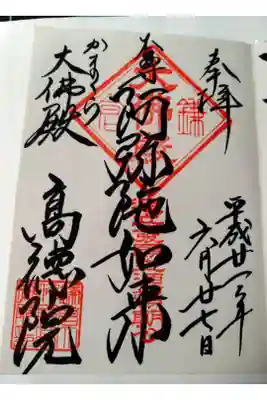 奉拝
平成廿年
六月廿七日
本尊
阿弥陀如来
かまくら
大佛殿
高徳院
鎌倉